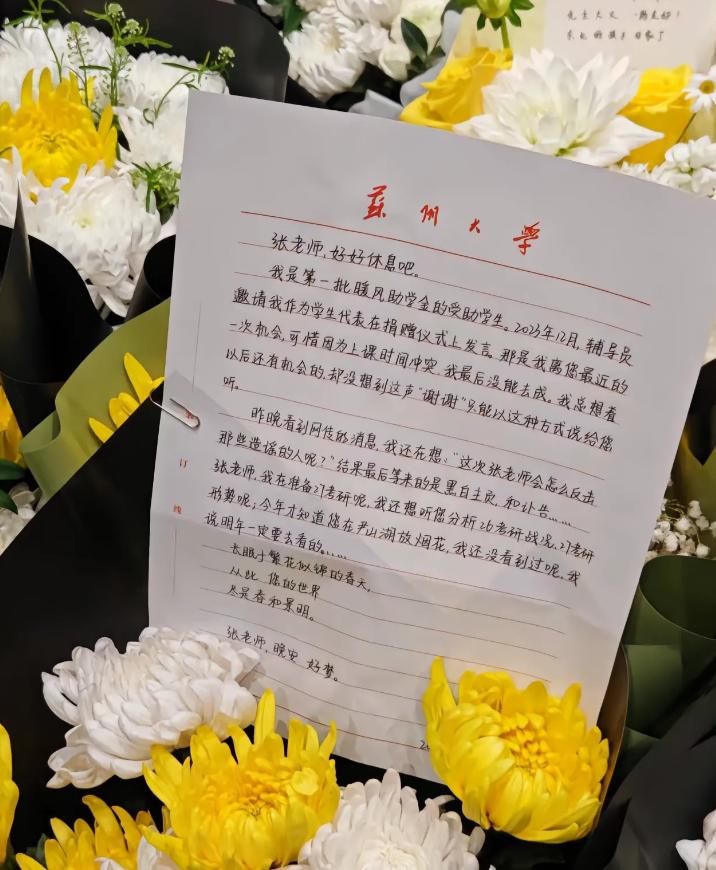 先生大义 一路走好!
苏州大学
张老师,好好休息吧。
我是第一批暖风助学金的受助学生。2023年12月,辅导员
邀请我作为学生代表在捐赠仪式上发言,那是我离您最近的
一次机会,可惜因为上课时间冲突,我最后没能去成。我总想着
以后还有机会的,却没想到这声“谢谢”只能以这种方式说给您
听。
昨晚看到网传的消息,我还在想,“这次张老师会怎么反击
那些造谣的人呢?”结果最后等来的是黑白主页,和讣告……
张老师,我在准备27考研呢,我还想听您分析26考研战况、27考研
形势呢;今年才知道您在尹山湖放烟花,我还没看到过呢,我
说明年一定要去看的……
长眠于繁花似锦的春天,
从此 您的世界
尽是春和景明。
张老师,晚安 好梦。
订
线
2